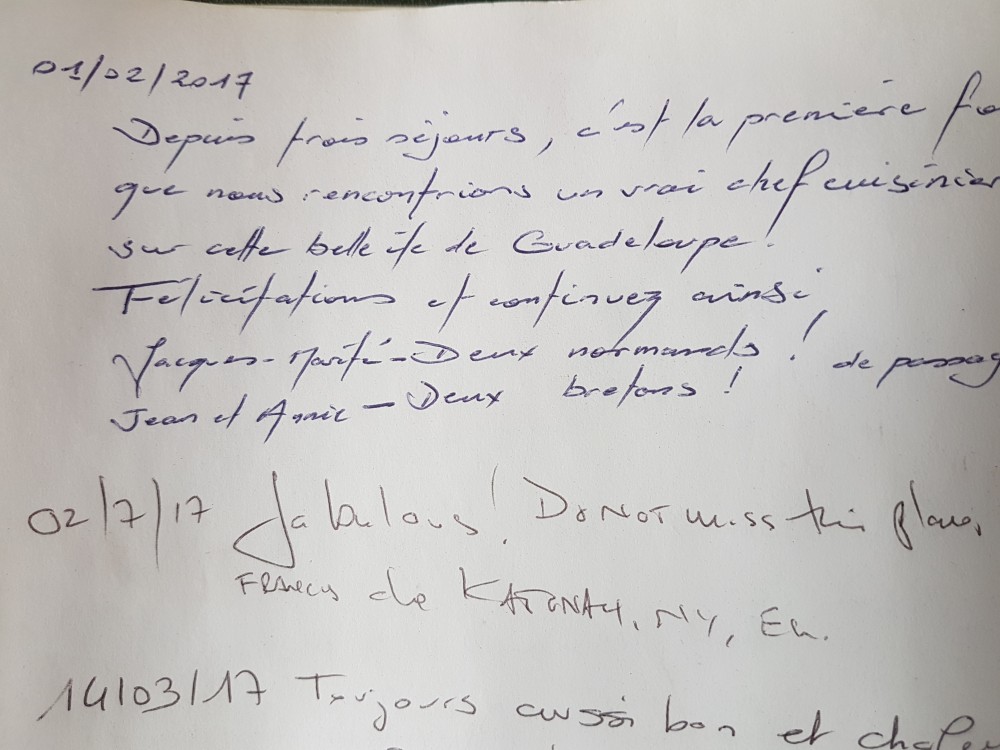 01/02/2017
Depuis trois séjours, c'est la première fo
que nous rencontrions un vrai chef cuisinier
sur cette belle île de Guadeloupe!
Félicitations et continuez ainsi
Jacques-Maïté-Deux normands ! de passag
Jean et Annie - Deux bretons !
02/7/17 Fabulous! Do NOT miss this place,
FRANCIS de KATONAH, NY, EU.
14/03/17 Toujours aussi bon et chaleu